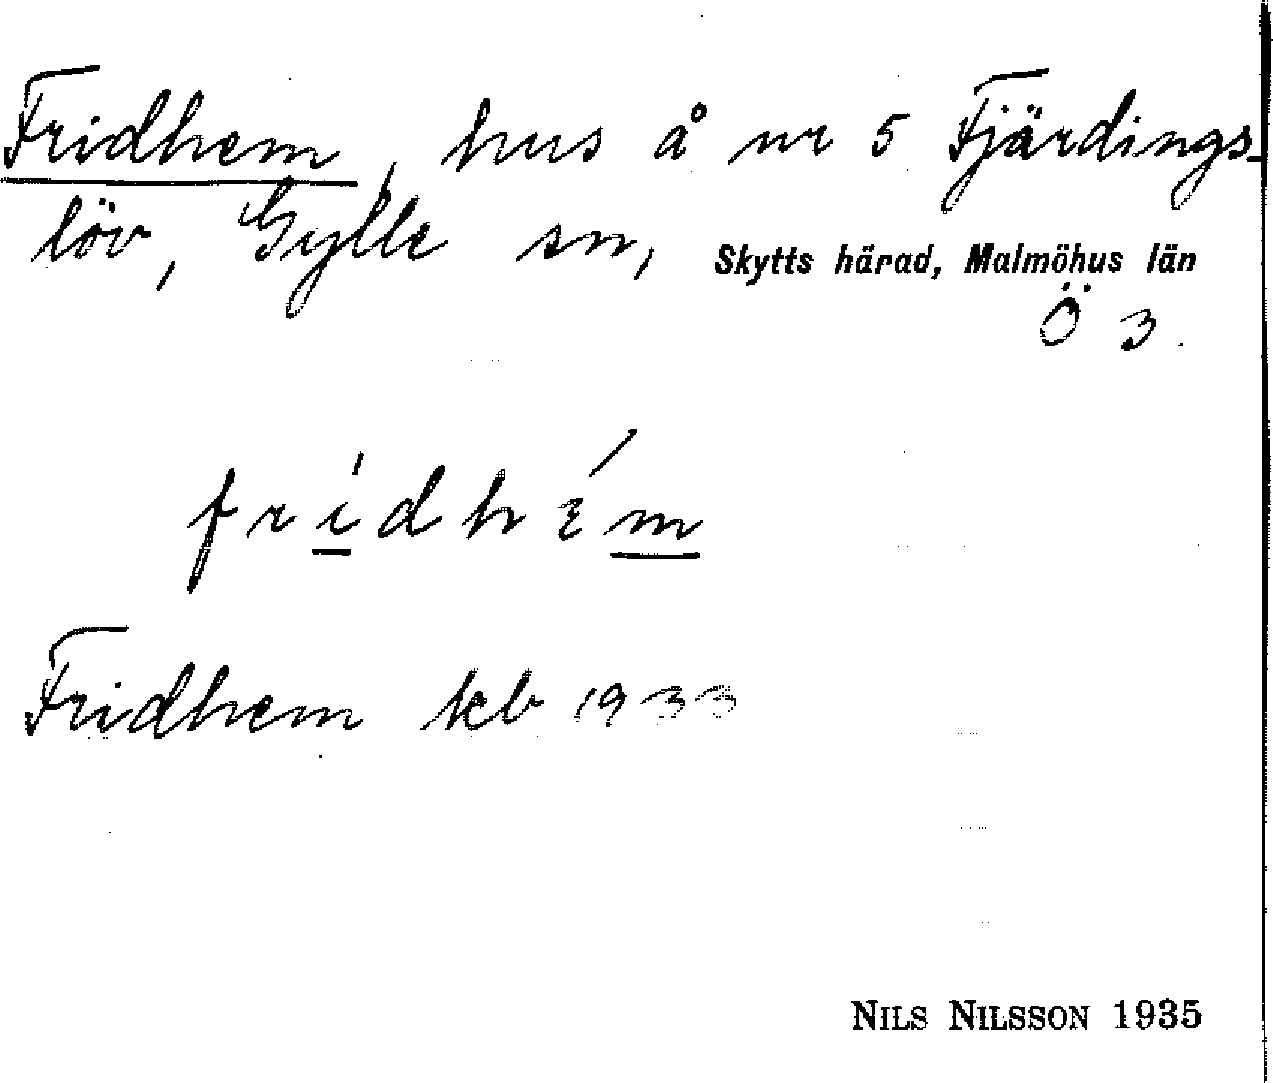 Fridhem, hus å nr 5 Fjärdings-
löv, Gylle sn, Skytts härad, Malmöhus län
Ö 3.
fridhɛ́m
Fridhem kb 1933
NILS NILSSON 1935